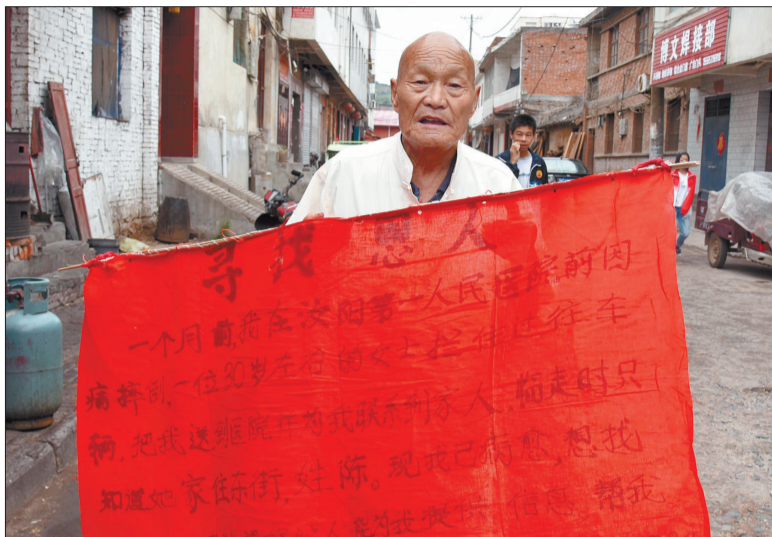 博文焊接部
寻找恩人
一个月前,我在汝阳第一人民医院前因
病摔倒,一位30岁左右的女士拦住过往车
辆,把我送到医院并为我联系到家人,临走时只
知道她家住东街,姓陈。现我已病愈,想找
人能为我提供信息,帮我